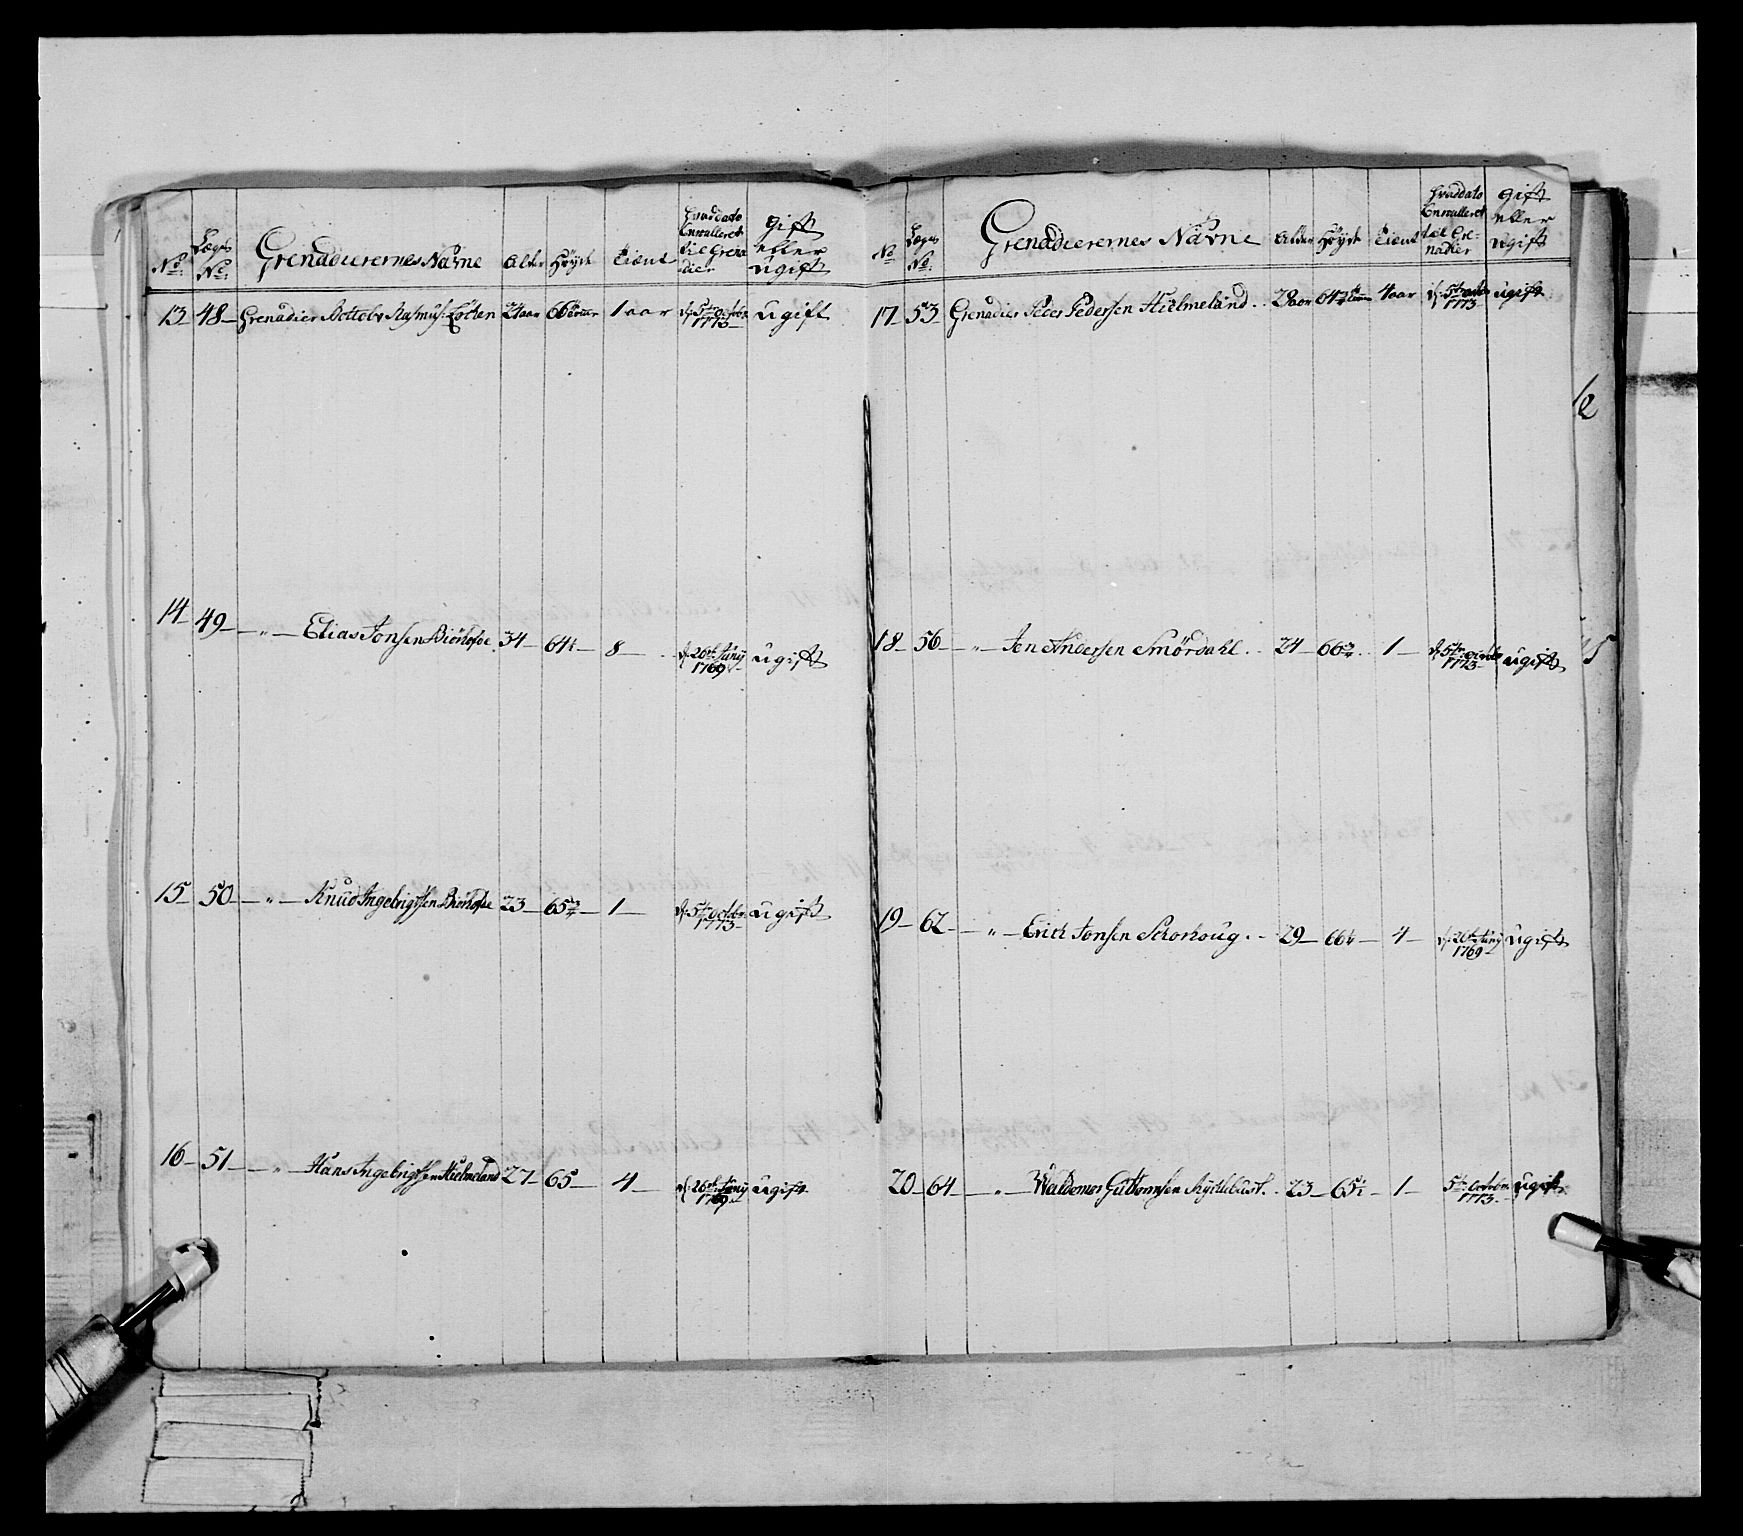 No: Lægs No: Grenadierernes Navne Alder Høyde Tient Hvad dato Enrulleret til Grenadier Gift eller ugift
13 48 Grenadier Rasmus: 24 aar 66 1 aar d: 5te octobr 1773 ugift
14 49 " Elias Jonsen 34 64¼ 8 d: 26de Juny 1769 ugift
15 50 " Knud Ingebrigtsen 23 65¾ 1 d: 5te octobr 1773 ugift
16 51 " Hans Ingebrigtsen Hielmeland 27 65 4 d: 26de Juny 1769 ugift
No Lægs No: Grenadierernes Navne Alder Høyde Tient Hvad dato Enrulleret til Grenadier Gift eller ugift
17 53 Grenadier Peder Pedersen Hielmeland 28 aar 64 4 aar d: 5te octobr 1773 ugift
18 56 " Jon Andersen Smørdahl 24 66¾ 1 d: 5te octobr 1773 ugift
19 62 " Erich Jonsen 29 66¼ 4 d: 26de Juny 1769 ugift
20 64 " Waldemor Guttormsen 23 65¼ 1 5te octobr 1773 ugift